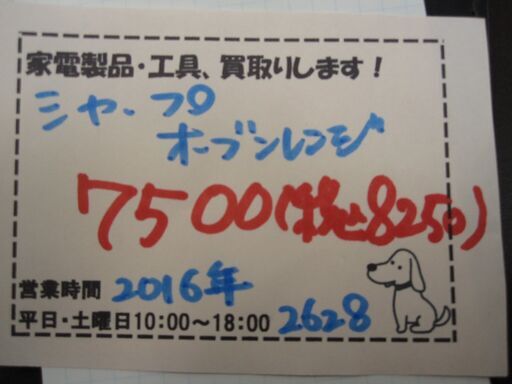 家電製品・工具、買取りします！
シャープ
オーブンレンジ
7500(税込8250)
営業時間 2016年
平日・土曜日10:00～18:00 2628